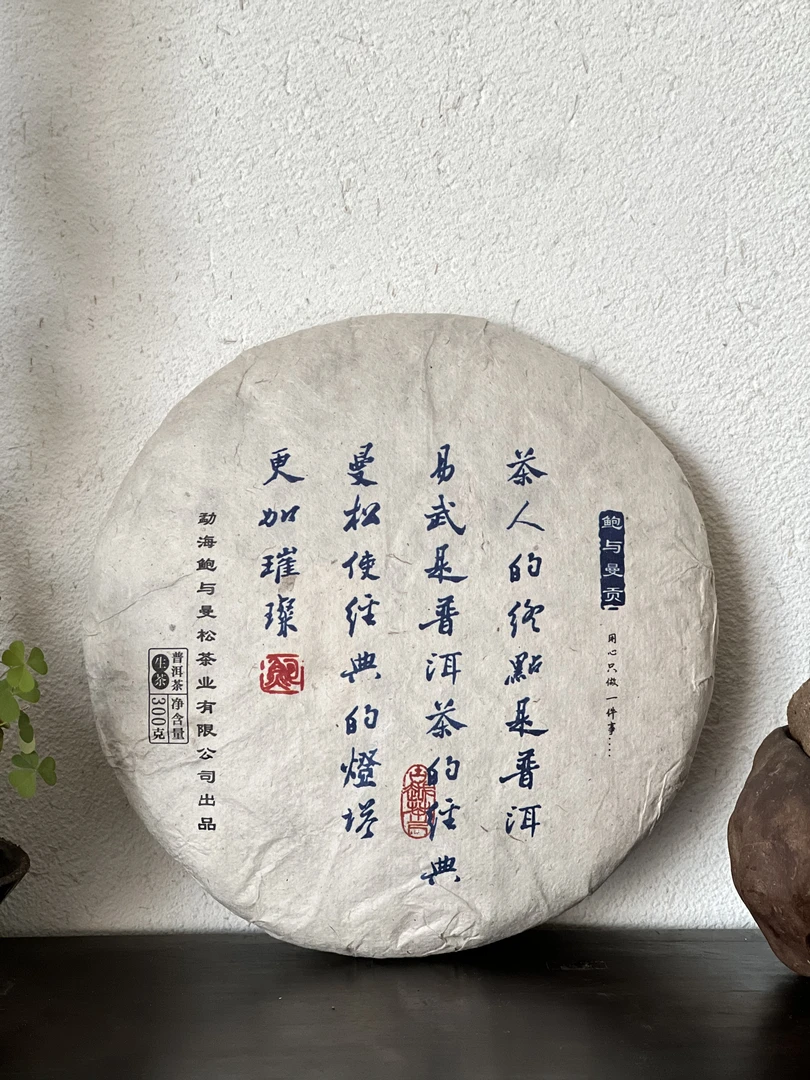 鲍与曼贡
用心只做一件事....
茶人的终點是普洱
易武是普洱茶的经典
曼松使经典的燈塔
更加璀璨
勐海鲍与曼松茶业有限公司出品
普洱茶 净含量
生茶 300克